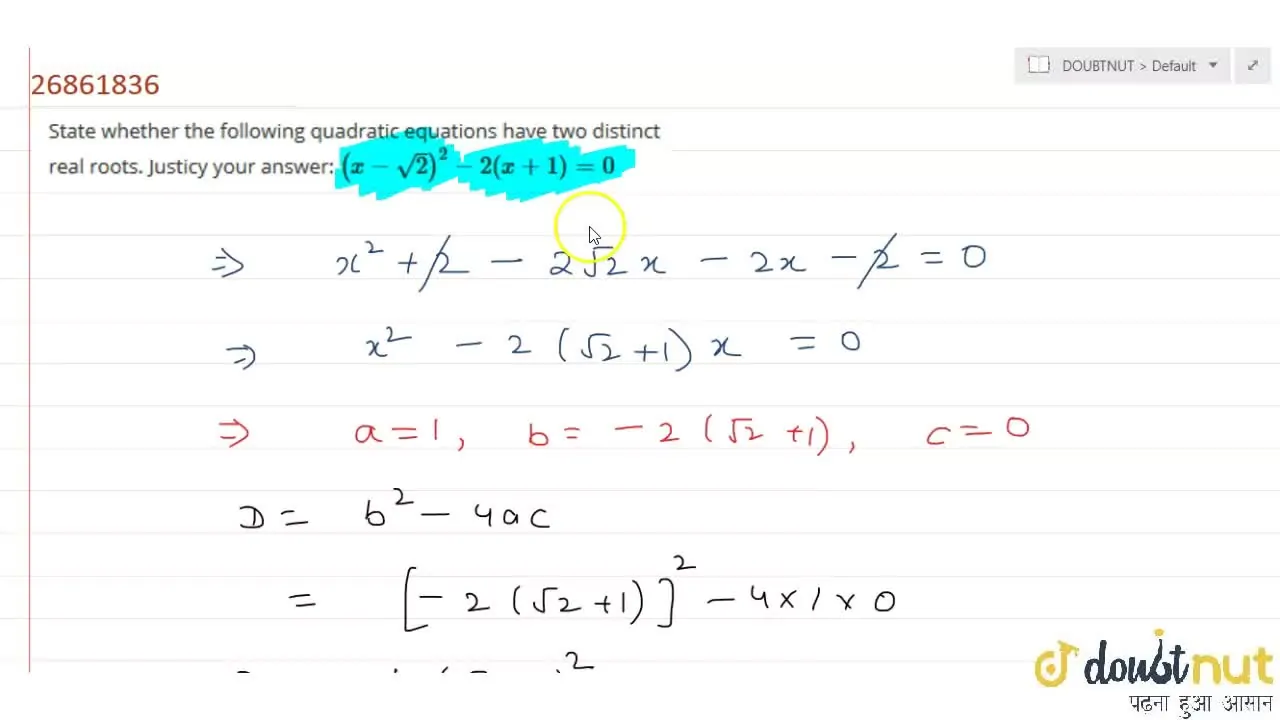 26861836
DOUBTNUT > Default
State whether the following quadratic equations have two distinct
real roots. Justicy your answer: (x − √2)² − 2(x + 1) = 0
⇒ x² + 2 − 2√2x − 2x − 2 = 0
⇒ x² − 2(√2+1)x = 0
⇒ a=1, b= −2(√2+1), c=0
D= b² − 4ac
= [−2(√2+1)]² − 4×1×0
2
doubtnut
पढ़ना हुआ आसान